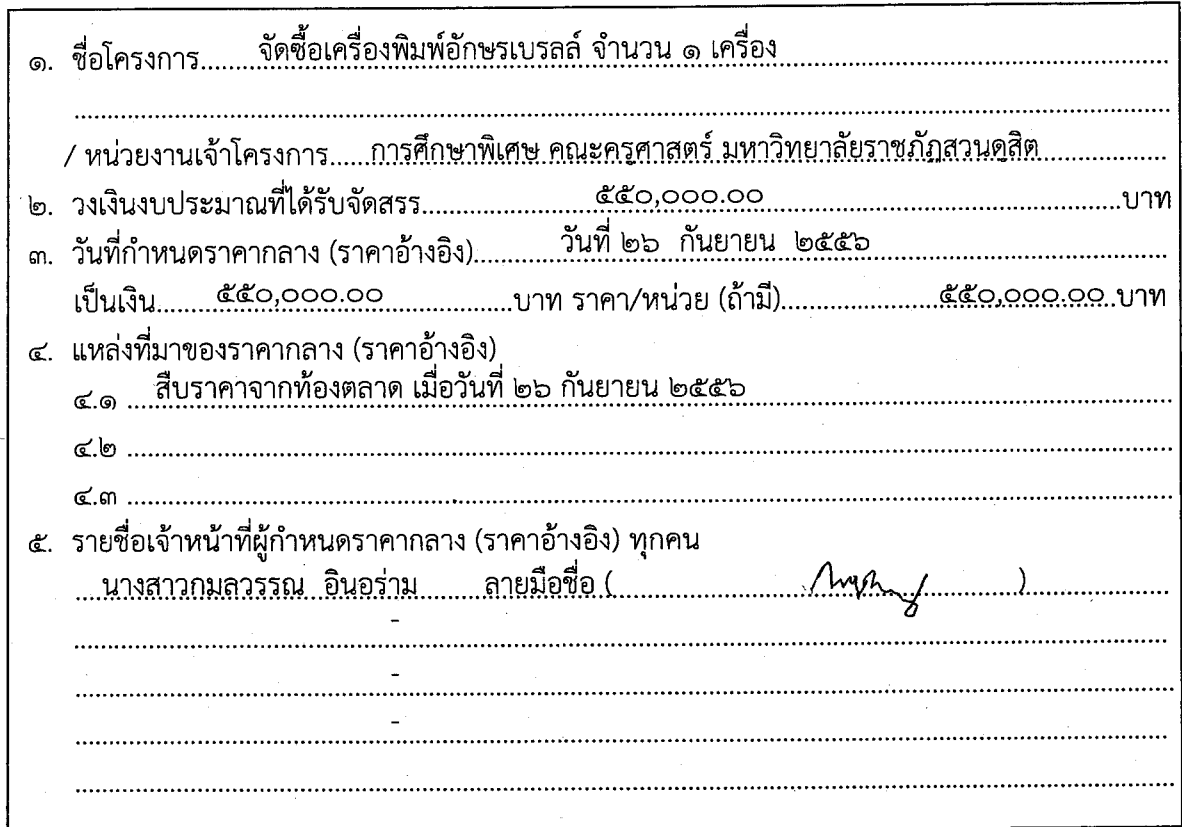 ๑. ชื่อโครงการ........จัดซื้อเครื่องพิมพ์อักษรเบรลล์ จำนวน ๑ เครื่อง
/ หน่วยงานเจ้าโครงการ......การศึกษาพิเศษ คณะครุศาสตร์ มหาวิทยาลัยราชภัฏสวนดุสิต
๒. วงเงินงบประมาณที่ได้รับจัดสรร........๕๕๐,๐๐๐.๐๐........บาท
๓. วันที่กำหนดราคากลาง (ราคาอ้างอิง)........วันที่ ๒๖ กันยายน ๒๕๕๖
เป็นเงิน........๕๕๐,๐๐๐.๐๐........บาท ราคา/หน่วย (ถ้ามี)........๕๕๐,๐๐๐.๐๐..บาท
๔. แหล่งที่มาของราคากลาง (ราคาอ้างอิง)
๔.๑ ....สืบราคาจากท้องตลาด เมื่อวันที่ ๒๖ กันยายน ๒๕๕๖
๔.๒ ........
๔.๓ ........
๕. รายชื่อเจ้าหน้าที่ผู้กำหนดราคากลาง (ราคาอ้างอิง) ทุกคน
....นางสาวกมลวรรณ อินอร่าม........ลายมือชื่อ (........)
-
-
-